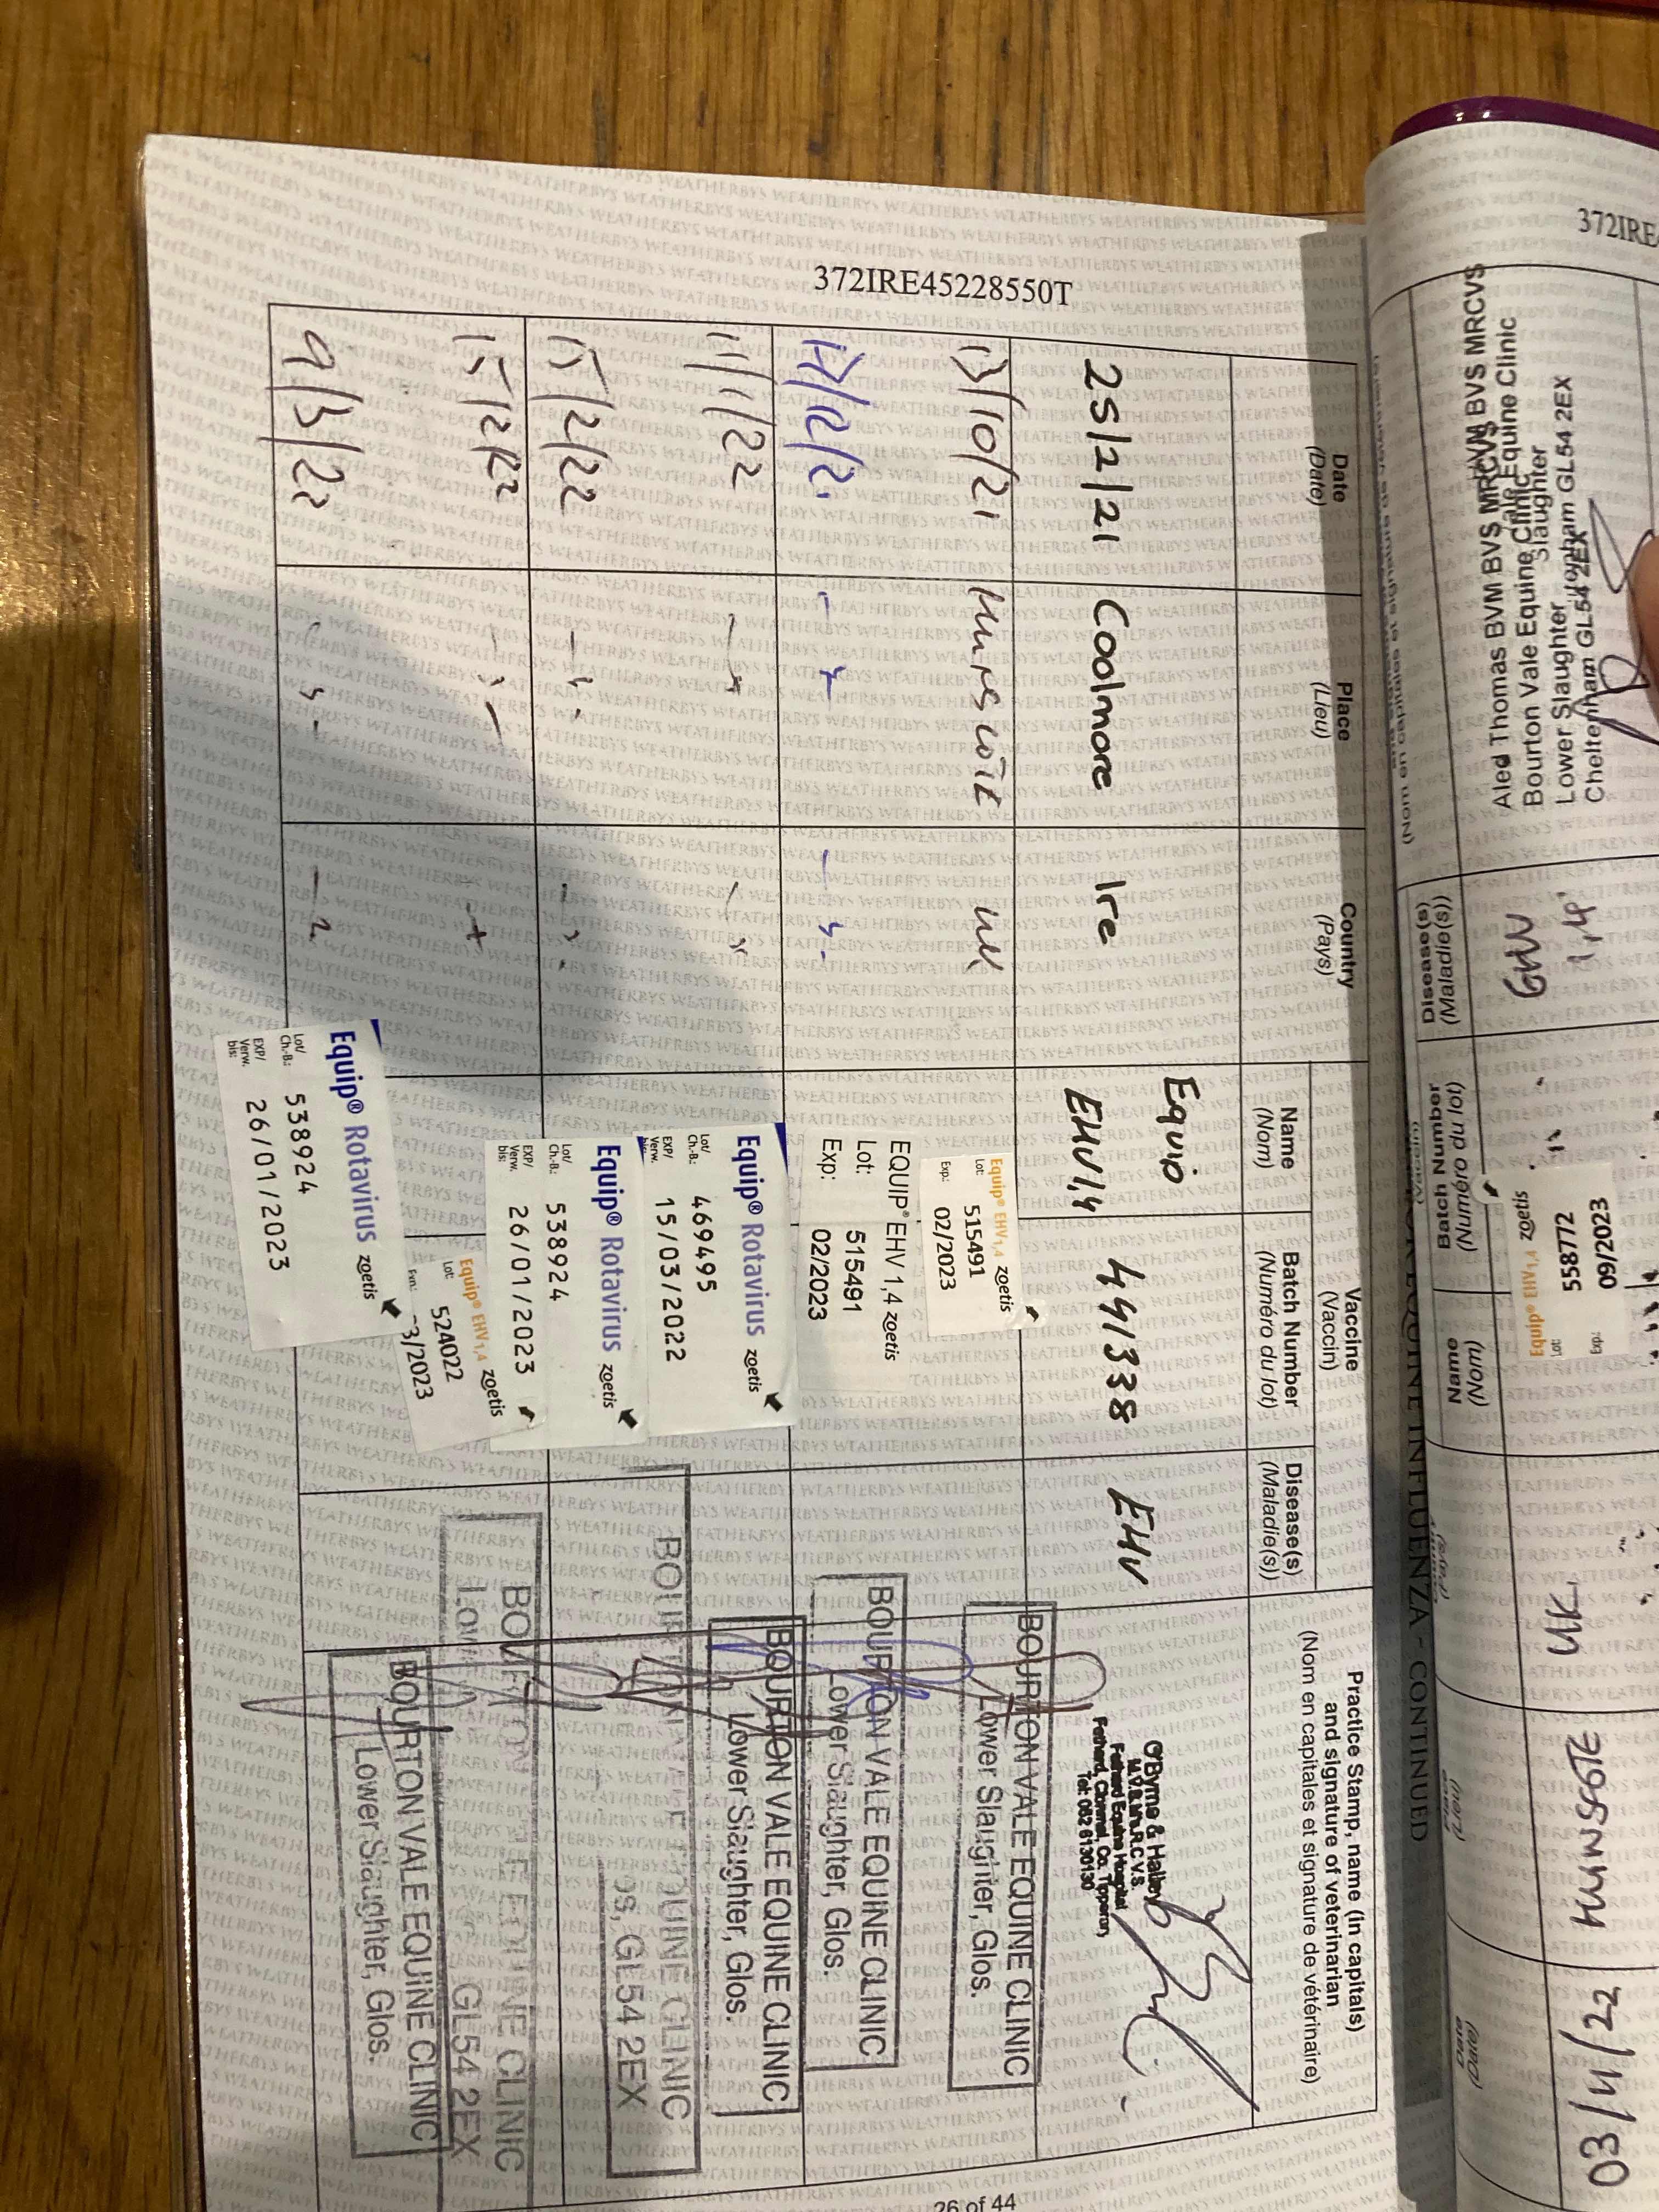 372IRE45228550T
Date
(Date)
Place
(Lieu)
Country
(Pays)
Vaccine
(Vaccin)
Name
(Nom)
Batch Number
(Numéro du lot)
Disease(s)
(Maladie(s))
Practice Stamp, name (in capitals)
and signature of veterinarian
(Nom en capitales et signature de vétérinaire)
25/2/21 Coolmore Ire Equip
EHV1,4 441338 EHV
O'Byrne & Halley
M.V.B. M.R.C.V.S.
Fethard Equine Hospital
Fethard, Clonmel, Co. Tipperary
Tel: 052 6130130
13/10/21 Hunscote UK
Equip® EHV1,4 zoetis
Lot: 515491
Exp.: 02/2023
BOURTON VALE EQUINE CLINIC
Lower Slaughter, Glos.
EQUIP® EHV 1,4 zoetis
Lot: 515491
Exp: 02/2023
BOURTON VALE EQUINE CLINIC
Lower Slaughter, Glos.
11/1/22
Equip® Rotavirus zoetis
Lot/
Ch.-B.: 469495
EXP/
Verw. 15/03/2022
BOURTON VALE EQUINE CLINIC
Lower Slaughter, Glos.
15/2/22
Equip® Rotavirus zoetis
Lot/
Ch.-B.: 538924
EXP/
Verw.
bis: 26/01/2023
EQUINE CLINIC
GL54 2EX
15/2/22
Equip® EHV1,4 zoetis
Lot: 524022
Exp.: 3/2023
CLINIC
GL54 2EX
9/3/22
Equip® Rotavirus zoetis
Lot/
Ch.-B.: 538924
EXP/
Verw.
bis: 26/01/2023
BOURTON VALE EQUINE CLINIC
Lower Slaughter, Glos.
26 of 44
372IRE
EQUINE INFLUENZA - CONTINUED
Aled Thomas BVM BVS MRCVS
Bourton Vale Equine Clinic
Lower Slaughter
Cheltenham GL54 2EX
Disease(s)
(Maladie(s))
Batch Number
(Numéro du lot)
Name
(Nom)
EHV
1,4
Equip® EHV1,4 zoetis
Lot: 558772
Exp.: 09/2023
UK
HUNSCOTE
03/4/22